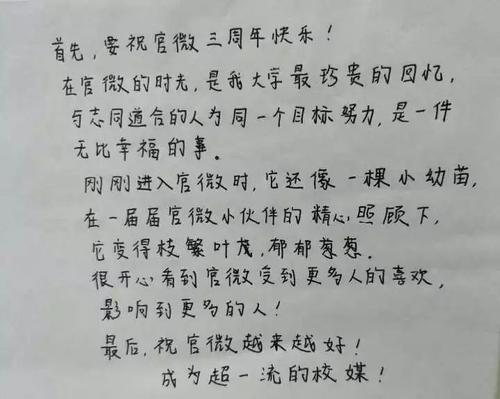 首先，要祝官微三周年快乐！
在官微的时光，是我大学最珍贵的回忆，
与志同道合的人为同一个目标努力，是一件
无比幸福的事。
刚刚进入官微时，它还像一棵小幼苗，
在一届届官微小伙伴的精心照顾下，
它变得枝繁叶茂，郁郁葱葱。
很开心看到官微受到更多人的喜欢，
影响到更多的人！
最后，祝官微越来越好！
成为超一流的校媒！